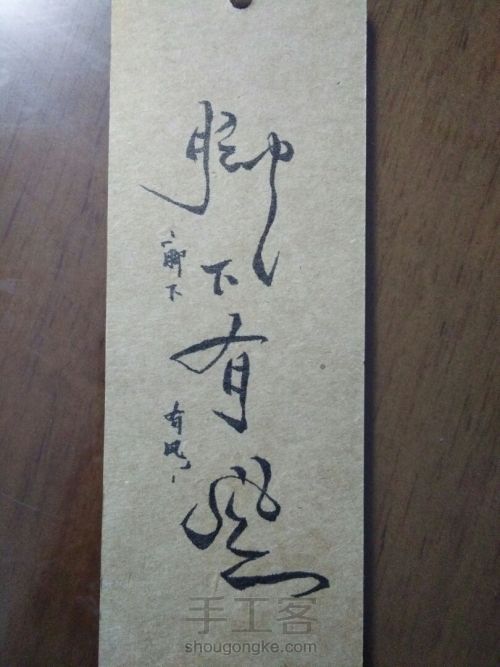 脚下有
脚下
有风
手工客
shougongke.com